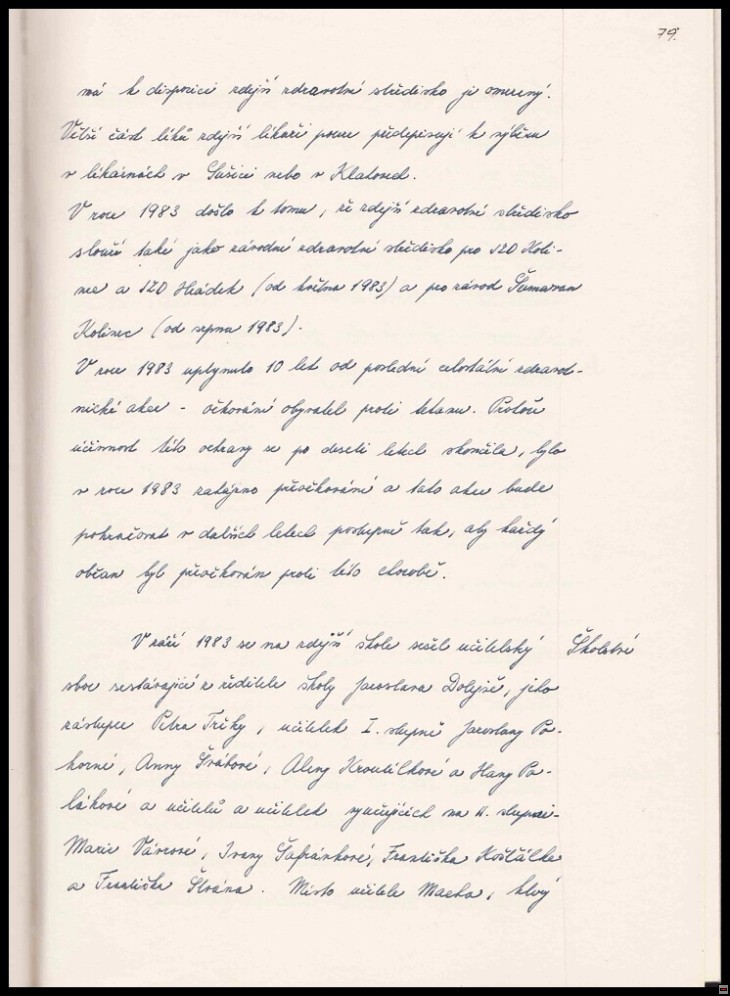 79.
má k dispozici zdejší zdravotní středisko je omezený.
Větší část léků zdejší lékaři pouze předepisují k výběru
v lékárnách v Sušici nebo v Klatovech.
V roce 1983 došlo k tomu, že zdejší zdravotní středisko
slouží také jako závodní zdravotní středisko pro JZD Koli-
nec a JZD Hrádek (od května 1983) a pro závod Šumavan
Kolinec (od srpna 1983).
V roce 1983 uplynulo 10 let od poslední celostátní zdravot-
nické akce - očkování obyvatel proti tetanu. Protože
účinnost této ochrany se po deseti letech skončila, bylo
v roce 1983 zahájeno přeočkování a tato akce bude
pokračovat v dalších letech postupně tak, aby každý
občan byl přeočkován proti této chorobě.
V září 1983 se na zdejší škole sešel učitelský
Školství
sbor sestávající z ředitele školy Jaroslava Dolejše, jeho
zástupce Petra Trčky, učitelek I. stupně Jaroslavy Po-
korné, Anny Švábové, Aleny Kroutilkové a Hany Po-
lákové a učitelů a učitelek vyučujících na II. stupni -
Marie Váncové, Ivany Šafránkové, Františka Košťálka
a Františka Slvána. Místo učitele Macha, který